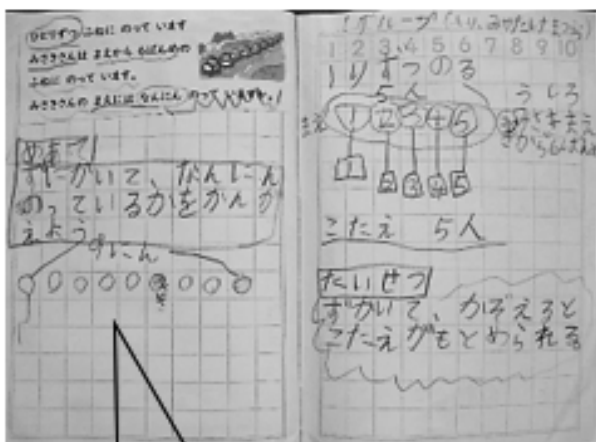 ひとりずつ ふねに のって います
みさきさんは まえから 6ばんめの
ふねに のって います。
みさきさんの まえには なんにん のって いますか。
めあて
ずにかいて、なんにん
のっているかをかんが
えよう
1グループ
1 2 3 4 5 6 7 8 9 10
1りずつのる
5人
うしろ
まえ ① ② ③ ④ ⑤
1 2 3 4 5
こたえ 5人
たいせつ
ずかいて、かぞえると
こたえがもとめられる